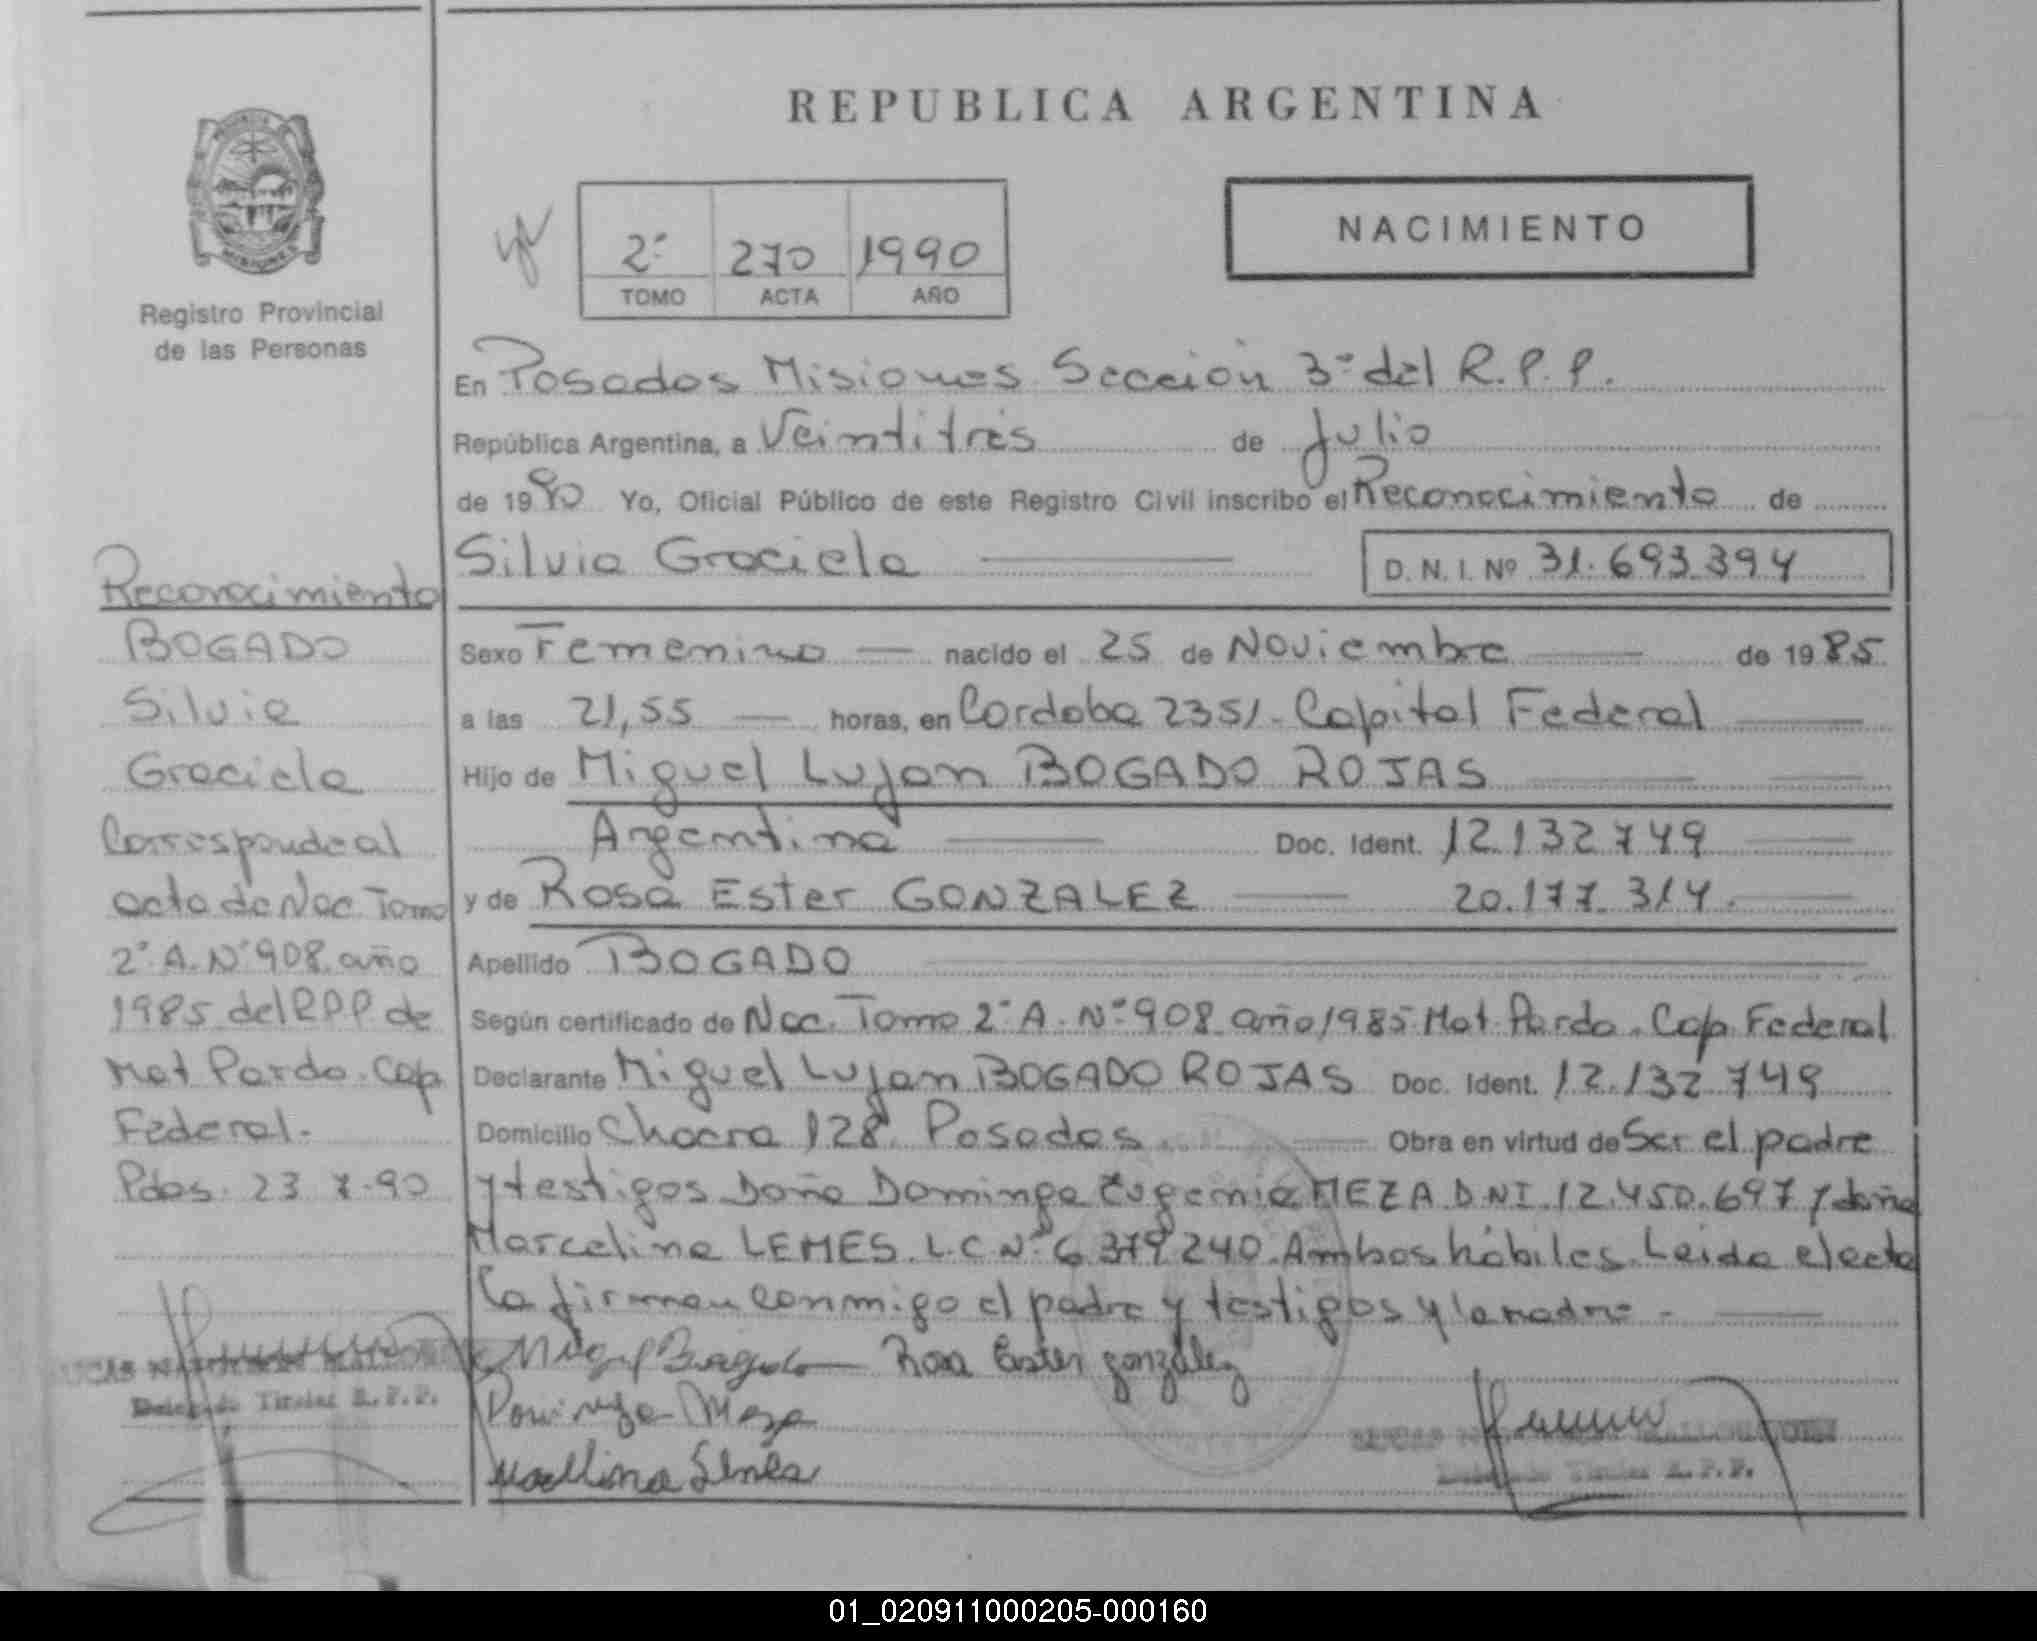 REPUBLICA ARGENTINA
NACIMIENTO
2º 270 1990
TOMO ACTA AÑO
Registro Provincial
de las Personas
En Posadas Misiones Sección 3º del R.P.P.
República Argentina, a Veintitrés de Julio
de 1990 Yo, Oficial Público de este Registro Civil inscribo el Reconocimiento de
Silvia Graciela D. N. I. Nº 31.693.394
Sexo Femenino nacido el 25 de Noviembre de 1985
a las 21,55 horas, en Cordoba 2351. Capital Federal
Hijo de Miguel Lujan BOGADO ROJAS
Argentina Doc. Ident. 12.132.749
y de Rosa Ester GONZALEZ 20.177.314.
Apellido BOGADO
Según certificado de Nac. Tomo 2º A. Nº 908 año 1985 Mat. Pardo. Cap. Federal
Declarante Miguel Lujan BOGADO ROJAS Doc. Ident. 12.132.749
Domicilio Chacra 128. Posadas Obra en virtud de Ser el padre
y testigos Doña Dominga Eugenia MEZA D.NI. 12.450.697 y doña
Marcelina LEMES. L.C. Nº 6.379.240. Ambos hábiles. Leida el acta
La firman conmigo el padre y testigos y la madre.
Miguel Bogado Rosa Ester gonzález
Dominga Meza
Delegado Titular R.P.P.
Reconocimiento
BOGADO
Silvia
Graciela
Corresponde al
acta de Nac. Tomo
2º A. Nº 908. año
1985 del RPP de
Mat Pardo. Cap
Federal.
Pdas. 23-7-90
Delegado Titular R.P.P.
01_020911000205-000160